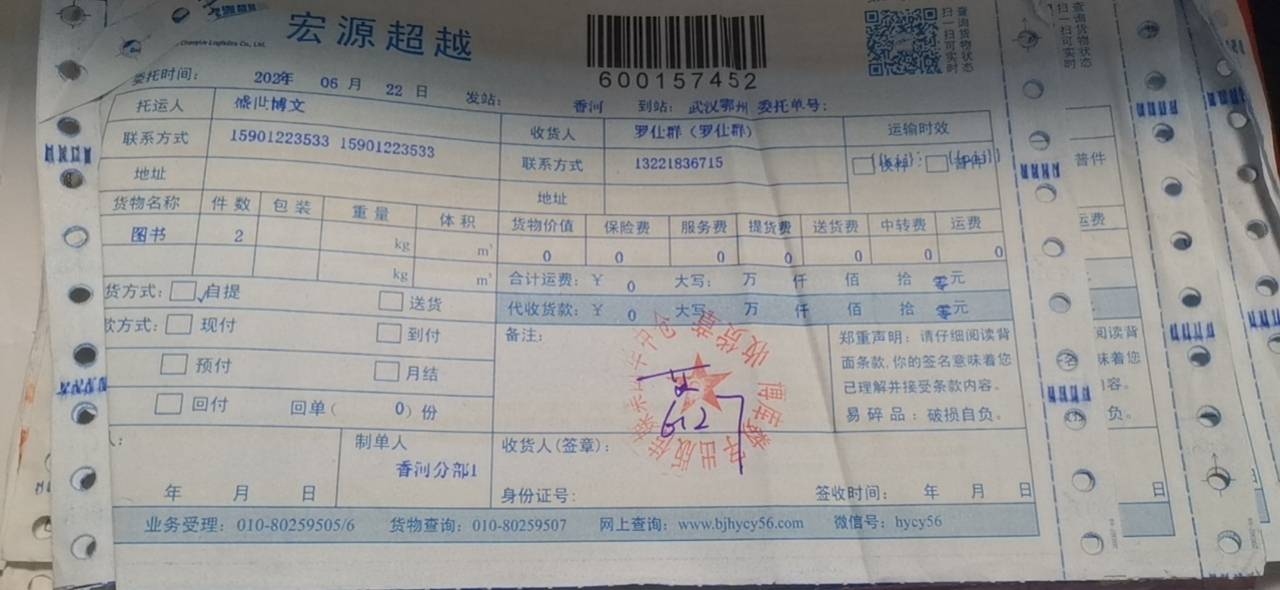 宏源超越
600157452
扫一扫可实时
查询货物状态
委托时间： 202年 06 月 22 日 发站： 香河 到站： 武汉鄂州 委托单号：
托运人 盛世博文 收货人 罗仕群（罗仕群） 运输时效
联系方式 15901223533 15901223533 联系方式 13221836715
地址 地址
货物名称 件数 包装 重量 体积 货物价值 保险费 服务费 提货费 送货费 中转费 运费
图书 2 kg m³ 0 0 0 0 0 0 0
kg m³ 合计运费：￥ 0 大写： 万 仟 佰 拾 零元
货方式： 自提 送货 代收货款：￥ 0 大写 万 仟 佰 拾 零元
款方式： 现付 到付 备注： 郑重声明：请仔细阅读背
面条款,你的签名意味着您
预付 月结 已理解并接受条款内容。
回付 回单（ 0）份 易碎品：破损自负。
612
制单人 收货人(签章)：
香河分部1
年 月 日 身份证号： 签收时间： 年 月 日
业务受理：010-80259505/6 货物查询：010-80259507 网上查询：www.bjhycy56.com 微信号：hycy56
扫一扫可实时
查询货物状态
普件
运费
阅读背
味着您
容。
负。
日